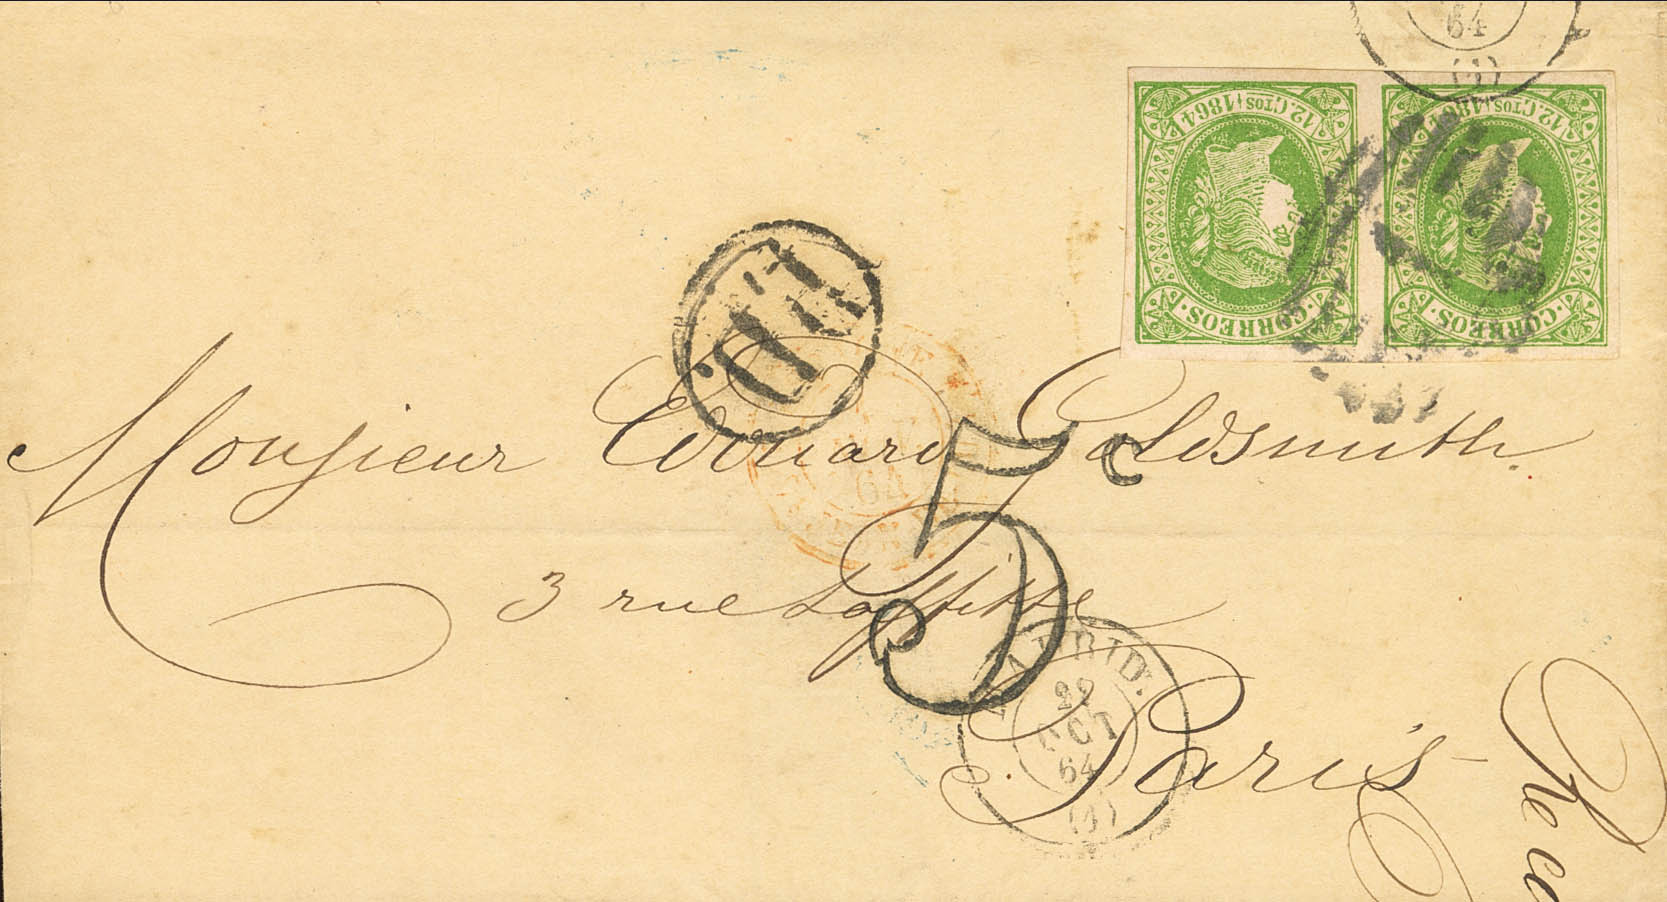 64
(1)
12. CTOS 1864
CORREOS
12. CTOS 1864
CORREOS
Monsieur Edouard Goldsmith.
64
3 rue Laffitte
5
MADRID.
29
OCT
64
(1)
Paris